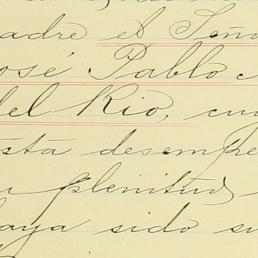 adre el Seño
José Pablo
del Rio, cu
esta desempe
plenitud
haya sido su